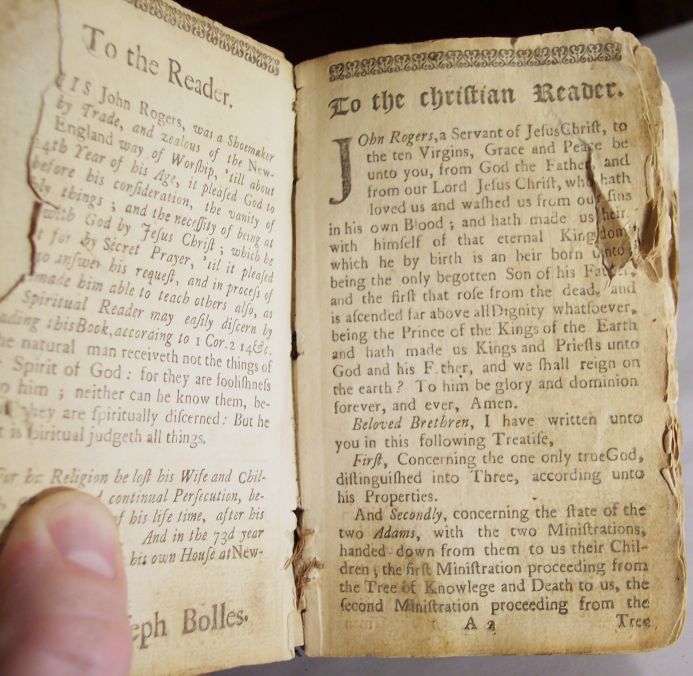 To the Reader.
IS John Rogers, was a Shoemaker
by Trade, and zealous of the New-
England way of Worship, 'till about
24th Year of his Age, it pleased God to
before his consideration, the vanity of
ly things ; and the necessity of being at
with God by Jesus Christ ; which he
t for by Secret Prayer, 'til it pleased
to answer his request, and in process of
made him able to teach others also, as
Spiritual Reader may easily discern by
ading this Book, according to 1 Cor. 2 14&c.
he natural man receiveth not the things of
Spirit of God : for they are foolishness
o him ; neither can be know them, be-
they are spiritually discerned : But he
t is spiritual judgeth all things.
For his Religion he lost his Wife and Chil-
continual Persecution, be-
of his life time, after his
And in the 73d year
his own House at New-
eph Bolles.
To the christian Reader.
JOhn Rogers, a Servant of Jesus Christ, to
the ten Virgins, Grace and Peace be
unto you, from God the Father, and
from our Lord Jesus Christ, who hath
loved us and washed us from our sins
in his own Blood ; and hath made us heir,
with himself of that eternal Kingdom,
which he by birth is an heir born unto ;
being the only begotten Son of his Father,
and the first that rose from the dead, and
is ascended far above all Dignity whatsoever,
being the Prince of the Kings of the Earth
and hath made us Kings and Priests unto
God and his F ther, and we shall reign on
the earth ? To him be glory and dominion
forever, and ever, Amen.
Beloved Brethren, I have written unto
you in this following Treatise,
First, Concerning the one only true God,
distinguished into Three, according unto
his Properties.
And Secondly, concerning the state of the
two Adams, with the two Ministrations,
handed down from them to us their Chil-
dren ; the first Ministration proceeding from
the Tree of Knowlege and Death to us, the
second Ministration proceeding from the
A 2 Tree